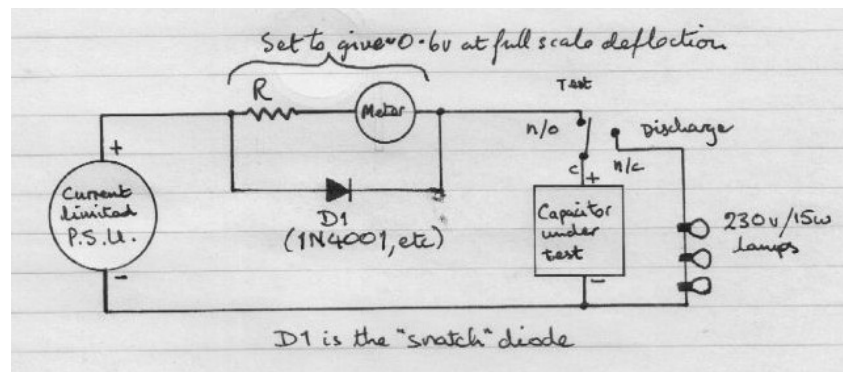 Set to give ~0.6v at full scale deflection
R
Meter
Test
n/o
Discharge
n/c
c
+
+
Current
limited
P.S.U.
-
D1
(1N4001, etc)
Capacitor
under
test
-
230v/15w
lamps
D1 is the "snatch" diode